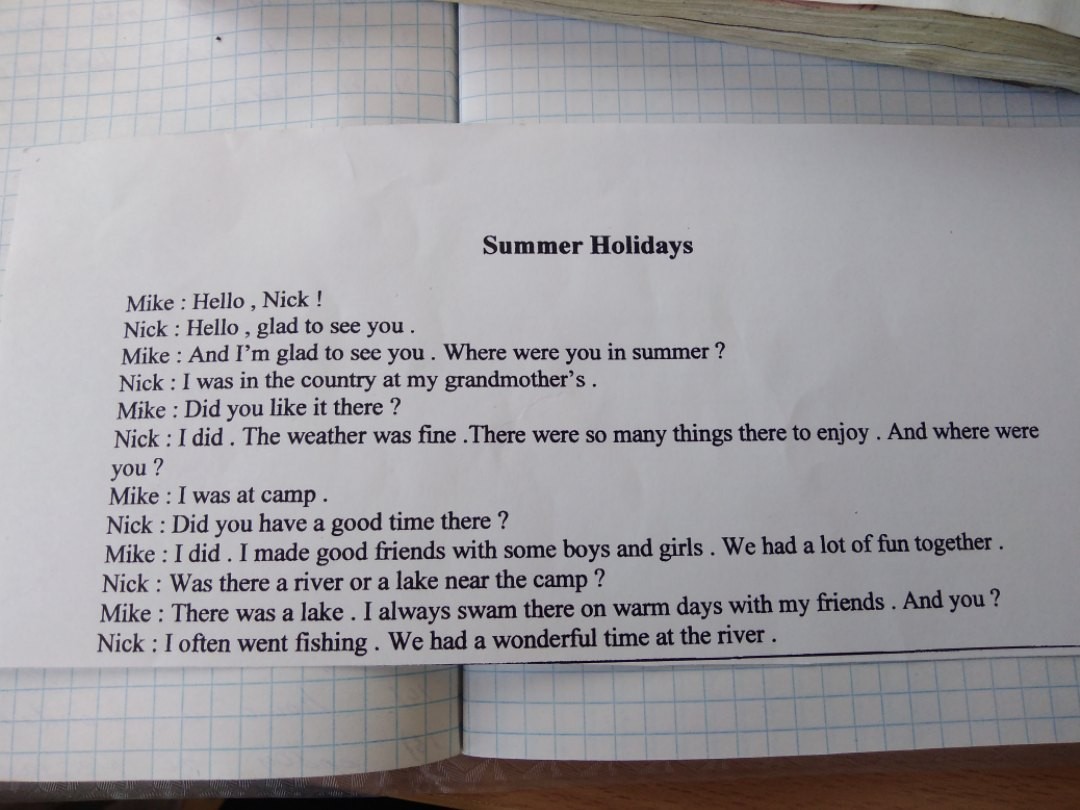 Summer Holidays
Mike : Hello , Nick !
Nick : Hello , glad to see you .
Mike : And I'm glad to see you . Where were you in summer ?
Nick : I was in the country at my grandmother's .
Mike : Did you like it there ?
Nick : I did . The weather was fine .There were so many things there to enjoy . And where were
you ?
Mike : I was at camp .
Nick : Did you have a good time there ?
Mike : I did . I made good friends with some boys and girls . We had a lot of fun together .
Nick : Was there a river or a lake near the camp ?
Mike : There was a lake . I always swam there on warm days with my friends . And you ?
Nick : I often went fishing . We had a wonderful time at the river .